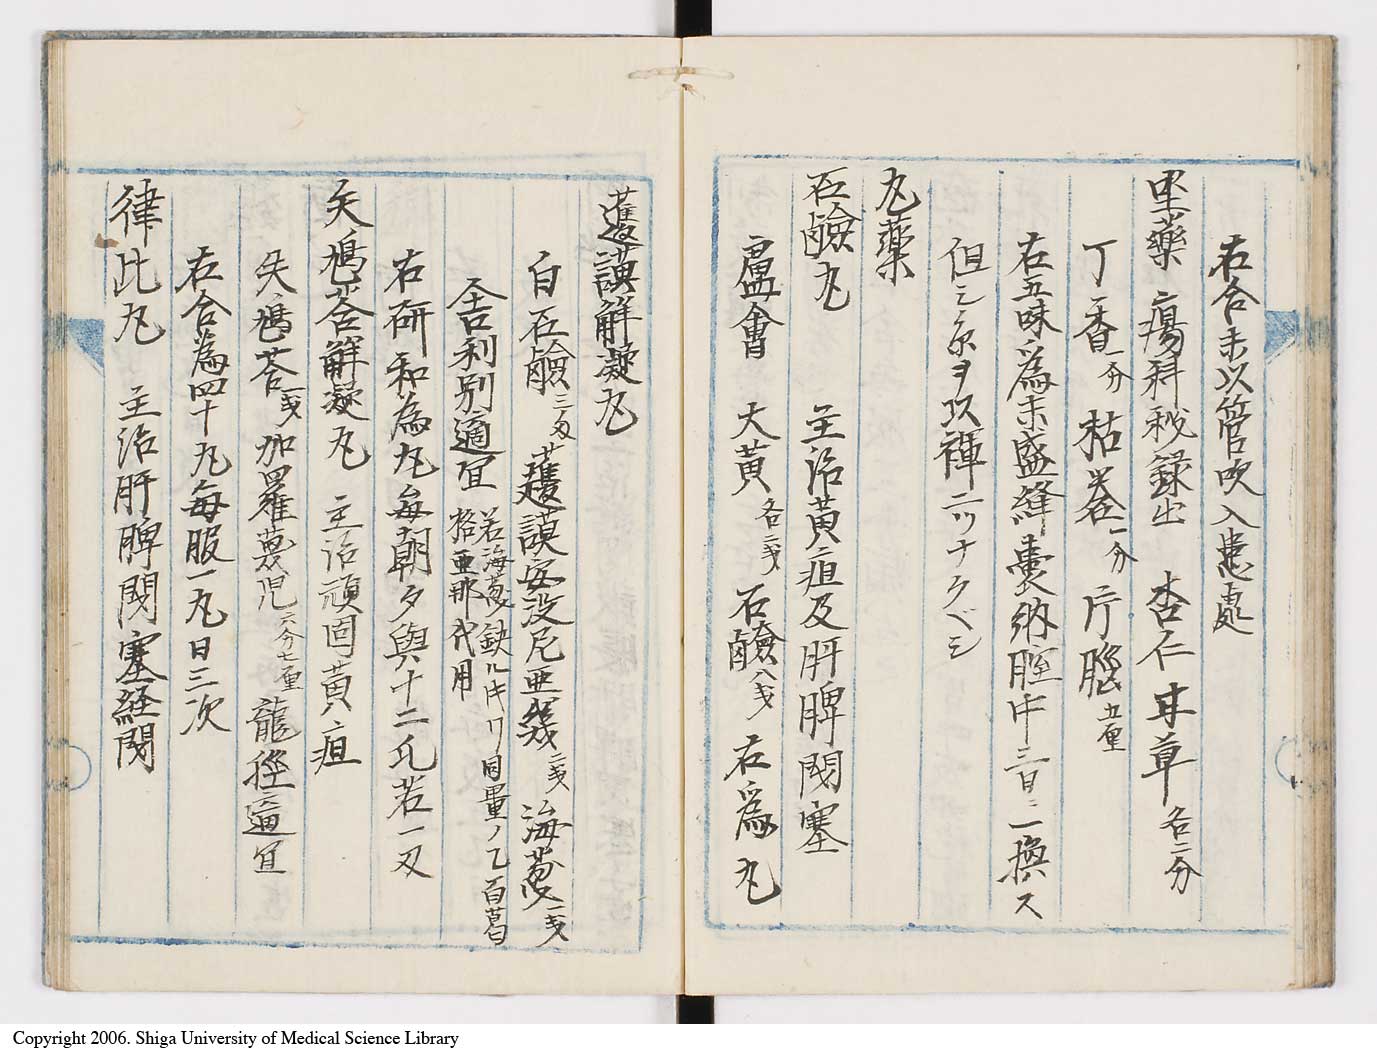 右合末以管吹入患処
坐薬 瘍科秘録出 杏仁 甘草 各二分
丁香一分 枯礬一分 片脳五厘
右五味為末盛絳嚢納膣中三日ニ一換ス
但シ糸ヲ以褌ニツナクベシ
丸薬
石鹸丸 主治黄疸及肝脾閉塞
盧會 大黄各二戔 石鹸八戔 右為丸
蘆謨解凝丸
白石鹸三匁 蘆謨安没尼亜幾二戔 海葱一戔
舎利別適宜 若海葱缺ル時ハ同量ノ乙百葛格亜那代用
右研和為丸毎朝夕與十二瓦若一刃
矢鳩荅解凝丸 主治頑固黄疸
失鳩荅一戔 加羅蔑児六分七厘 龍脛適宜
右合為四十丸毎服一丸日三次
律比丸 主治肝脾閉塞経閉
Copyright 2006. Shiga University of Medical Science Library